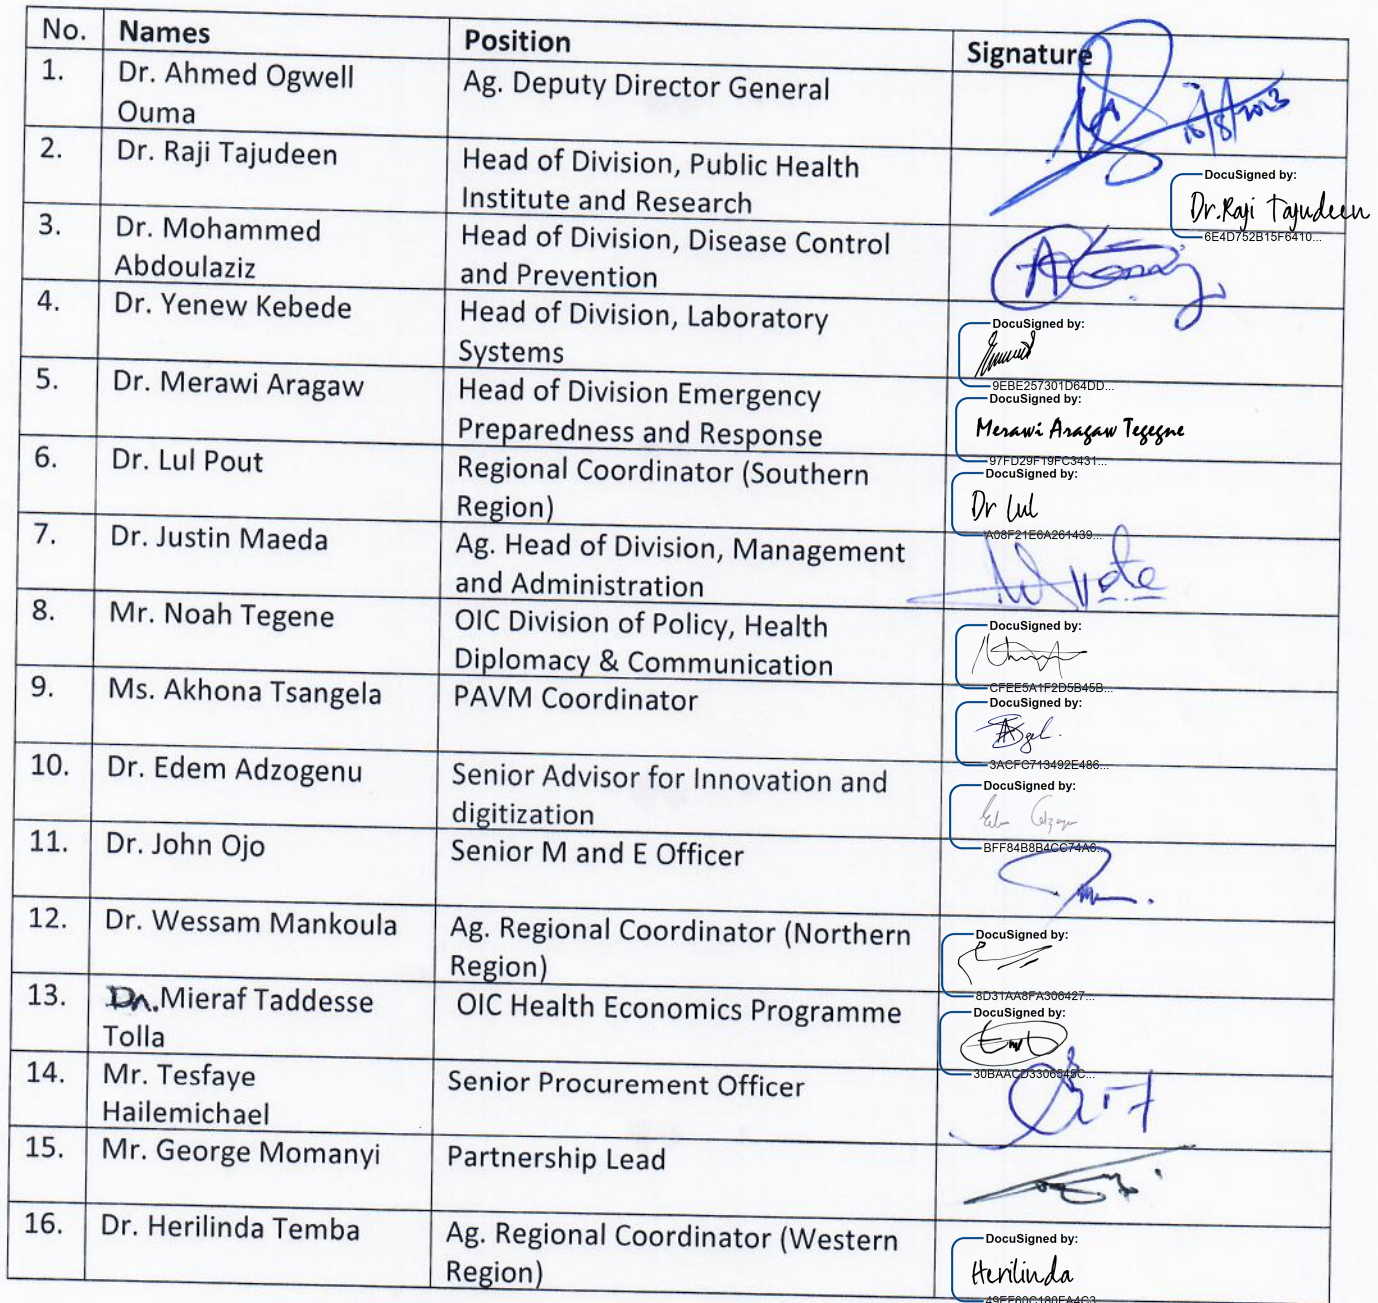 No. Names Position Signature
1. Dr. Ahmed Ogwell Ag. Deputy Director General
Ouma
16/8/2023
2. Dr. Raji Tajudeen Head of Division, Public Health
Institute and Research
DocuSigned by:
Dr.Raji Tajudeen
6E4D752B15F6410...
3. Dr. Mohammed Head of Division, Disease Control
Abdoulaziz and Prevention
4. Dr. Yenew Kebede Head of Division, Laboratory
Systems
DocuSigned by:
9EBE257301D64DD...
5. Dr. Merawi Aragaw Head of Division Emergency
Preparedness and Response
DocuSigned by:
Merawi Aragaw Tegegne
97FD29F19FC3431...
6. Dr. Lul Pout Regional Coordinator (Southern
Region)
DocuSigned by:
Dr Lul
A08F21E6A261439...
7. Dr. Justin Maeda Ag. Head of Division, Management
and Administration
8. Mr. Noah Tegene OIC Division of Policy, Health
Diplomacy & Communication
DocuSigned by:
CFEE5A1F2D5B45B...
9. Ms. Akhona Tsangela PAVM Coordinator
DocuSigned by:
3ACFC713492E486...
10. Dr. Edem Adzogenu Senior Advisor for Innovation and
digitization
DocuSigned by:
BFF84B8B4CC74A6...
11. Dr. John Ojo Senior M and E Officer
12. Dr. Wessam Mankoula Ag. Regional Coordinator (Northern
Region)
DocuSigned by:
8D31AA8FA306427...
13. Dr. Mieraf Taddesse OIC Health Economics Programme
Tolla
DocuSigned by:
30BAACD3306549C...
14. Mr. Tesfaye Senior Procurement Officer
Hailemichael
15. Mr. George Momanyi Partnership Lead
16. Dr. Herilinda Temba Ag. Regional Coordinator (Western
Region)
DocuSigned by:
Herilinda